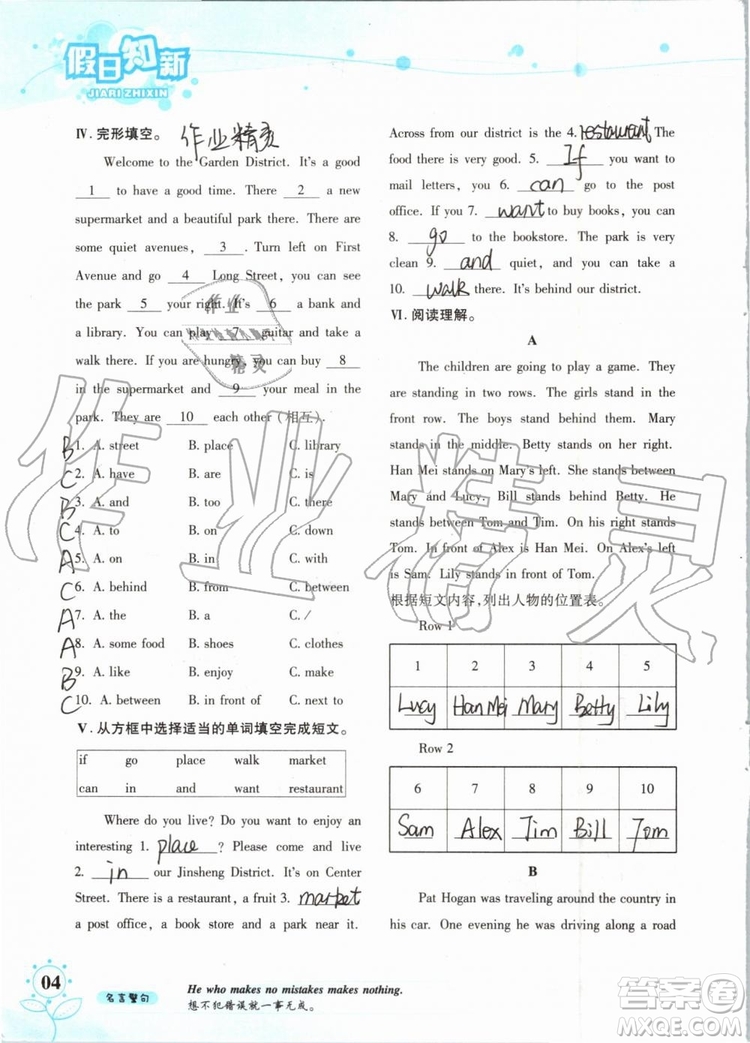 假日知新
JIARI ZHIXIN
Ⅳ. 完形填空。 作业精灵
Welcome to the Garden District. It's a good
1 to have a good time. There 2 a new
supermarket and a beautiful park there. There are
some quiet avenues, 3 . Turn left on First
Avenue and go 4 Long Street, you can see
the park 5 your right. It's 6 a bank and
a library. You can play 7 guitar and take a
walk there. If you are hungry, you can buy 8
in the supermarket and 9 your meal in the
park. They are 10 each other (相互).
B 1. A. street B. place C. library
C 2. A. have B. are C. is
B 3. A. and B. too C. there
C 4. A. to B. on C. down
A 5. A. on B. in C. with
C 6. A. behind B. from C. between
A 7. A. the B. a C. /
A 8. A. some food B. shoes C. clothes
B 9. A. like B. enjoy C. make
C 10. A. between B. in front of C. next to
Ⅴ. 从方框中选择适当的单词填空完成短文。
if go place walk market
can in and want restaurant
Where do you live? Do you want to enjoy an
interesting 1. place ? Please come and live
2. in our Jinsheng District. It's on Center
Street. There is a restaurant, a fruit 3. market
a post office, a book store and a park near it.
Across from our district is the 4. restaurant The
food there is very good. 5. If you want to
mail letters, you 6. can go to the post
office. If you 7. want to buy books, you can
8. go to the bookstore. The park is very
clean 9. and quiet, and you can take a
10. walk there. It's behind our district.
Ⅵ. 阅读理解。
A
The children are going to play a game. They
are standing in two rows. The girls stand in the
front row. The boys stand behind them. Mary
stands in the middle. Betty stands on her right.
Han Mei stands on Mary's left. She stands between
Mary and Lucy. Bill stands behind Betty. He
stands between Tom and Tim. On his right stands
Tom. In front of Alex is Han Mei. On Alex's left
is Sam. Lily stands in front of Tom.
根据短文内容,列出人物的位置表。
Row 1
1 2 3 4 5
Lucy Han Mei Mary Betty Lily
Row 2
6 7 8 9 10
Sam Alex Tim Bill Tom
B
Pat Hogan was traveling around the country in
his car. One evening he was driving along a road
04
名言警句
He who makes no mistakes makes nothing.
想不犯错误就一事无成。
作业精灵
作业
精灵
答案圈
MXQE.COM